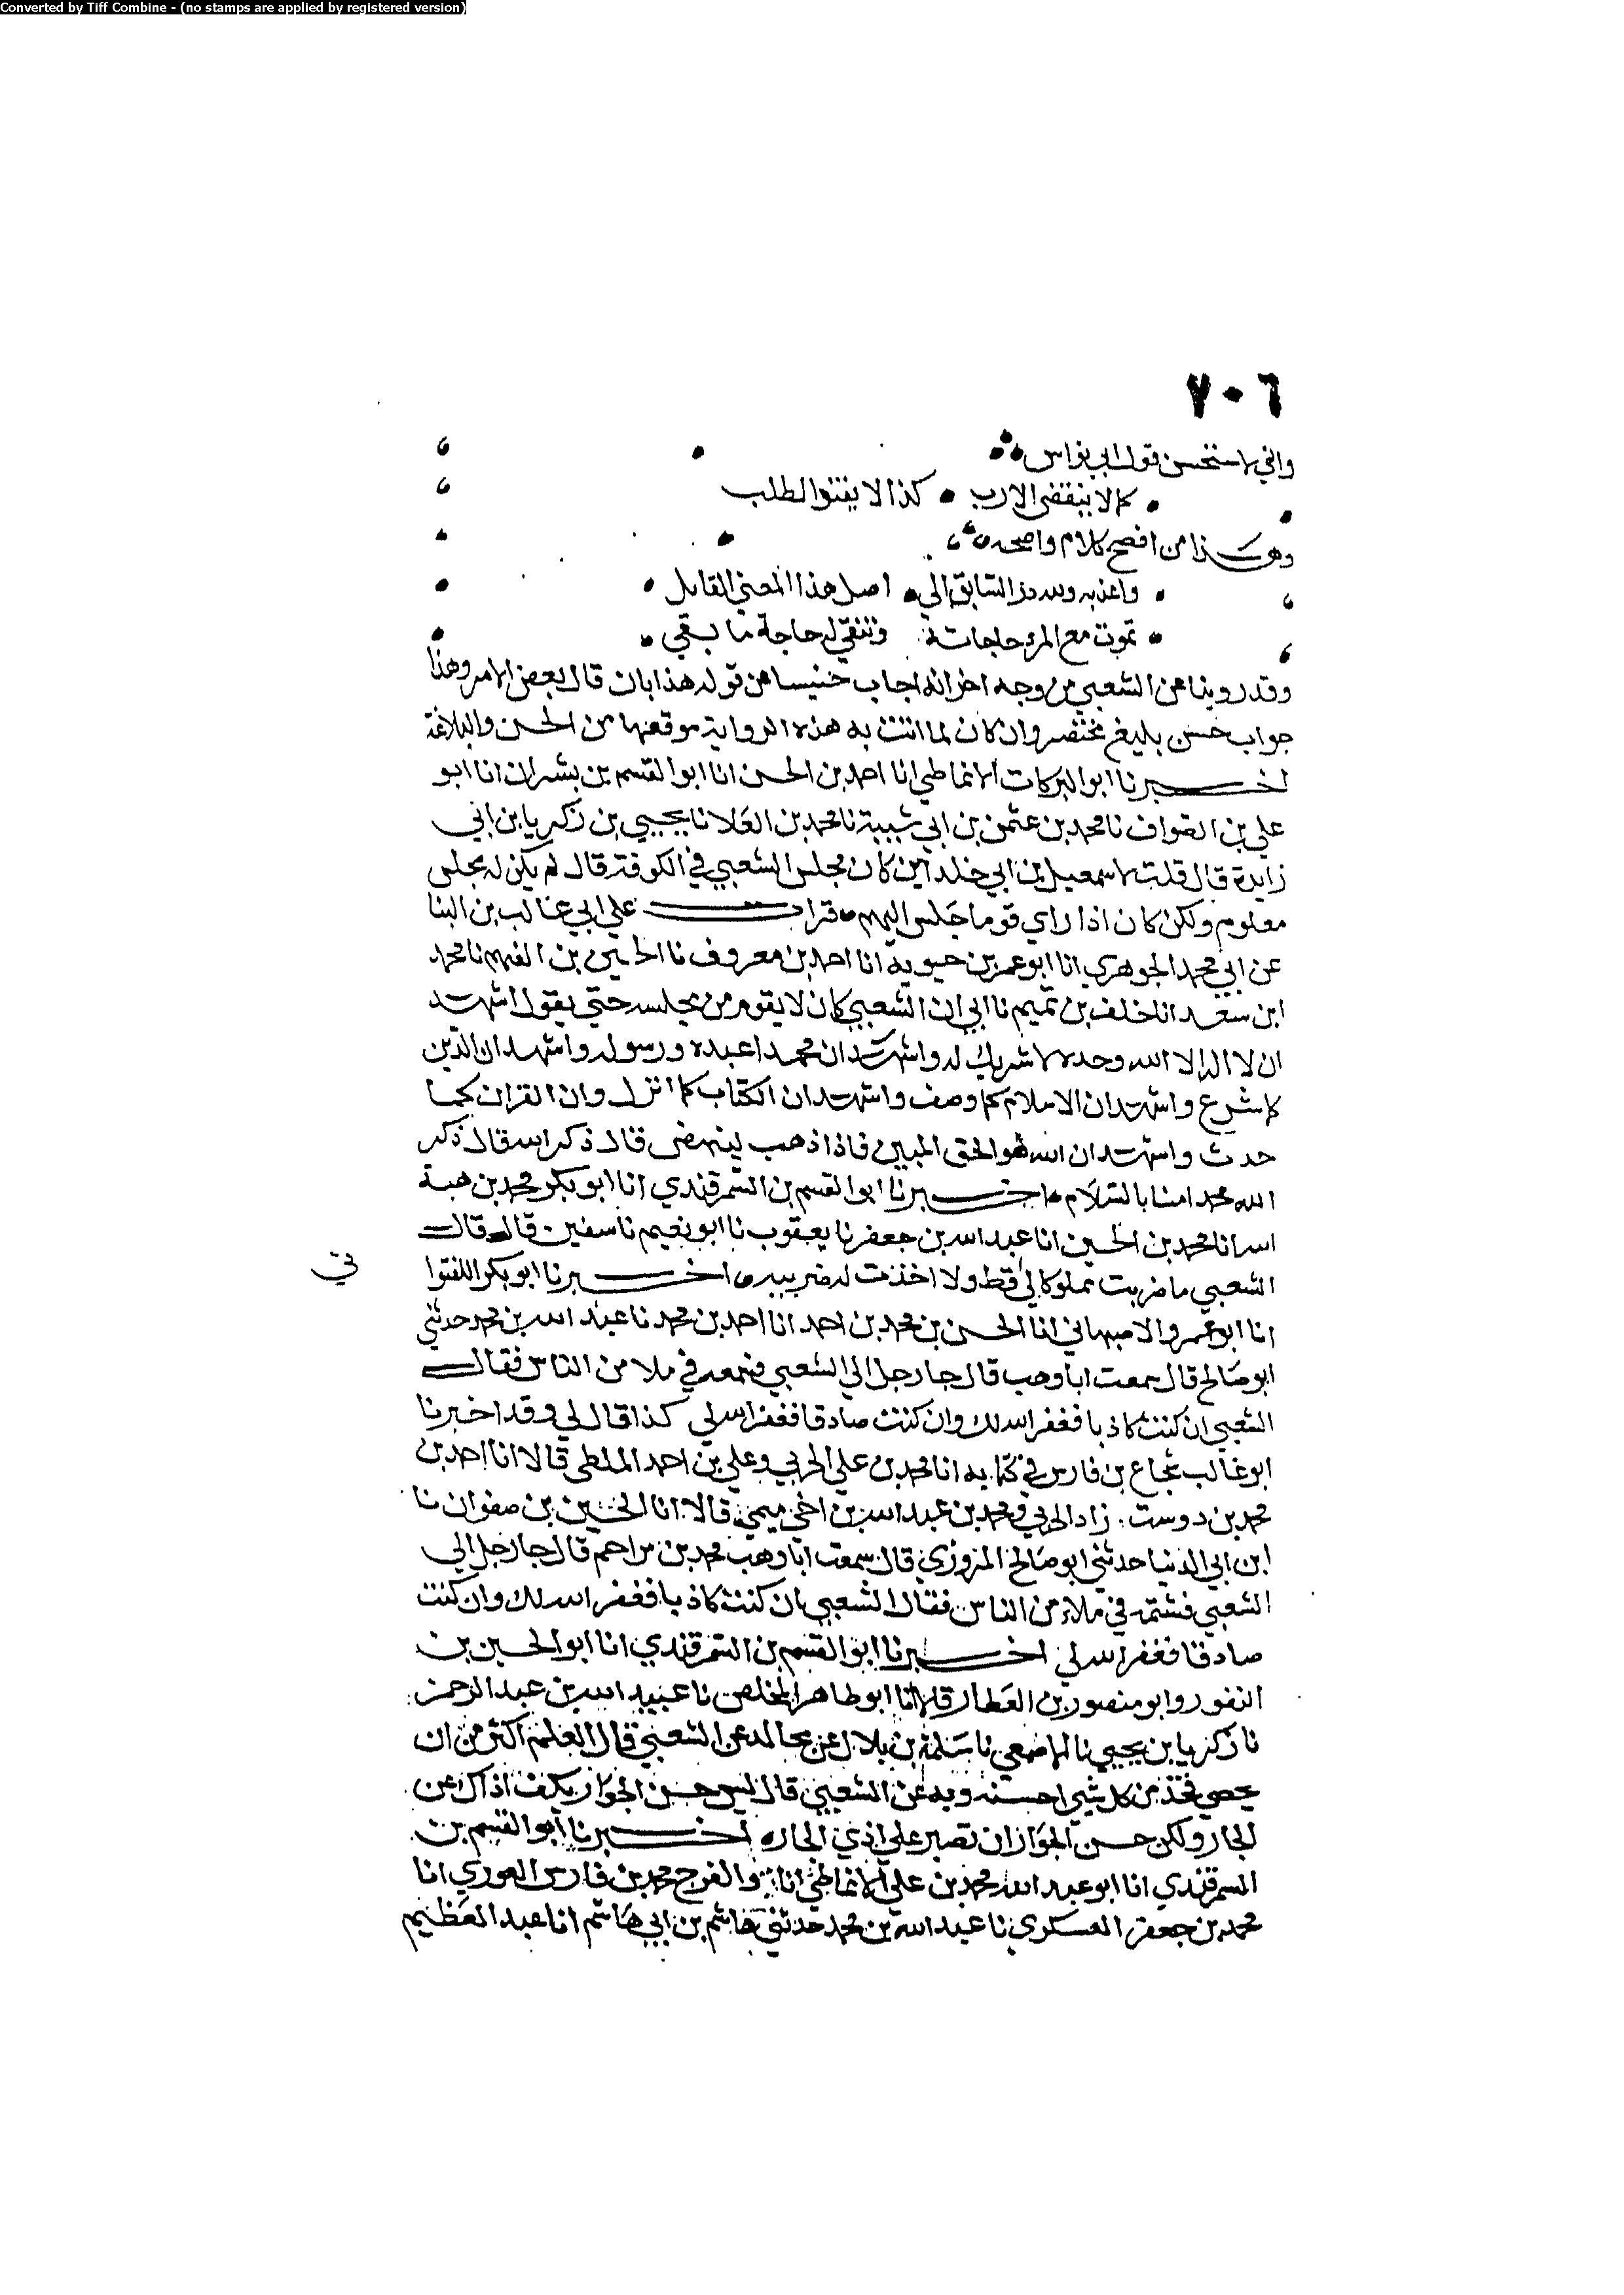 Converted by Tiff Combine - (no stamps are applied by registered version)
٧٠٦
واني لاستحسن قول ابي نواس
كما لا ينقضي الارب كذا لا يفتر الطلب
وهذا من افصح كلام واصحه
واعذبه ولله در السابق الي اصل هذا المعني القايل
تموت مع المرء حاجاته وتبقي له حاجة ما بقي
وقد روينا عن الشعبي من وجه اخر انه اجاب خنيسا عن قوله هذا بان قال بعض الامر وهذا
جواب حسن بليغ مختصر وان كان لما اتت به هذه الرواية موقعها من الحسن والبلاغة
اخبرنا ابو البركات الانماطي انا احمد بن الحسن انا ابو القسم بن بشران انا ابو
علي بن الصواف نا محمد بن عثمن بن ابي شيبة نا محمد بن العلا نا يحيي بن زكريا بن ابي
زايدة قال قلت لاسمعيل بن ابي خلد اين كان مجلس الشعبي في الكوفة قال لم يكن له مجلس
معلوم ولكن كان اذا راي قوما جلس اليهم قرات علي ابي غالب بن البنا
عن ابي محمد الجوهري انا ابو عمر بن حيويه انا احمد بن معروف نا الحسين بن الفهم نا محمد
ابن سعد انا خلف بن تميم نا ابي ان الشعبي كان لا يقوم من مجلسه حتي يقول اشهد
ان لا اله الا الله وحده لا شريك له واشهد ان محمدا عبده ورسوله واشهد ان الدين
كما شرع واشهد ان الاسلام كما وصف واشهد ان الكتاب كما انزل وان القران كما
حدث واشهد ان الله هو الحق المبين فاذا ذهب لينهض قال ذكر الله قال ذكر
الله محمد امنا بالسلام اخبرنا ابو القسم بن السمرقندي انا ابو بكر محمد بن هبة
الله انا محمد بن الحسين انا عبد الله بن جعفر نا يعقوب نا ابو نعيم نا سفين قال قال
الشعبي ما ضربت مملوكا لي قط ولا اخذت له ضريبة اخبرنا ابو بكر اللفتوا
ني
انا ابو عمرو الاصبهاني انا الحسن بن محمد بن احمد انا احمد بن محمد نا عبد الله بن محمد حدثني
ابو صالح قال سمعت ابا وهب قال جا رجل الي الشعبي في ملا من الناس فقال
الشعبي ان كنت كاذبا فغفر الله لك وان كنت صادقا فغفر الله لي كذا قال لي وقد اخبرنا
ابو غالب شجاع بن فارس في كتابه انا محمد بن علي الحربي وعلي بن احمد الملطي قالا انا احمد بن
محمد بن دوست زاد الحربي ومحمد بن عبد الله بن اخي ميمي قالا انا الحسين بن صفوان نا
ابن ابي الدنيا حدثني ابو صالح المروزي قال سمعت ابا وهب محمد بن مزاحم قال جا رجل الي
الشعبي فشتمه في ملاء من الناس فقال الشعبي ان كنت كاذبا فغفر الله لك وان كنت
صادقا فغفر الله لي اخبرنا ابو القسم بن السمرقندي انا ابو الحسين بن
النقور وابو منصور بن العطار قالا انا ابو طاهر المخلص نا عبيد الله بن عبد الرحمن
نا زكريا بن يحيي نا الاصمعي نا سلمة بن بلال عن مجالد عن الشعبي قال العلم اكثر من ان
يحصي فخذ من كل شي احسنه وبه عن الشعبي قال ليس حسن الجوار بكف اذاك عن
الجار ولكن حسن الجوار ان تصبر علي اذي الجار اخبرنا ابو القسم بن
السمرقندي انا ابو عبد الله محمد بن علي الانماطي انا ابو الفرج محمد بن فارس الغوري انا
محمد بن جعفر العسكري نا عبد الله بن محمد حدثني هاشم بن ابي هاشم انا عبد العظيم